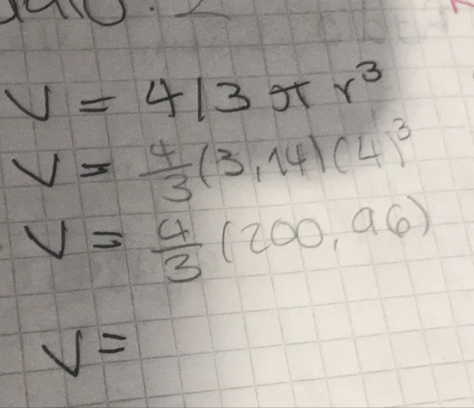 V = 4/3 π r³
V = 4/3 (3,14)(4)³
V = 4/3 (200,96)
V =